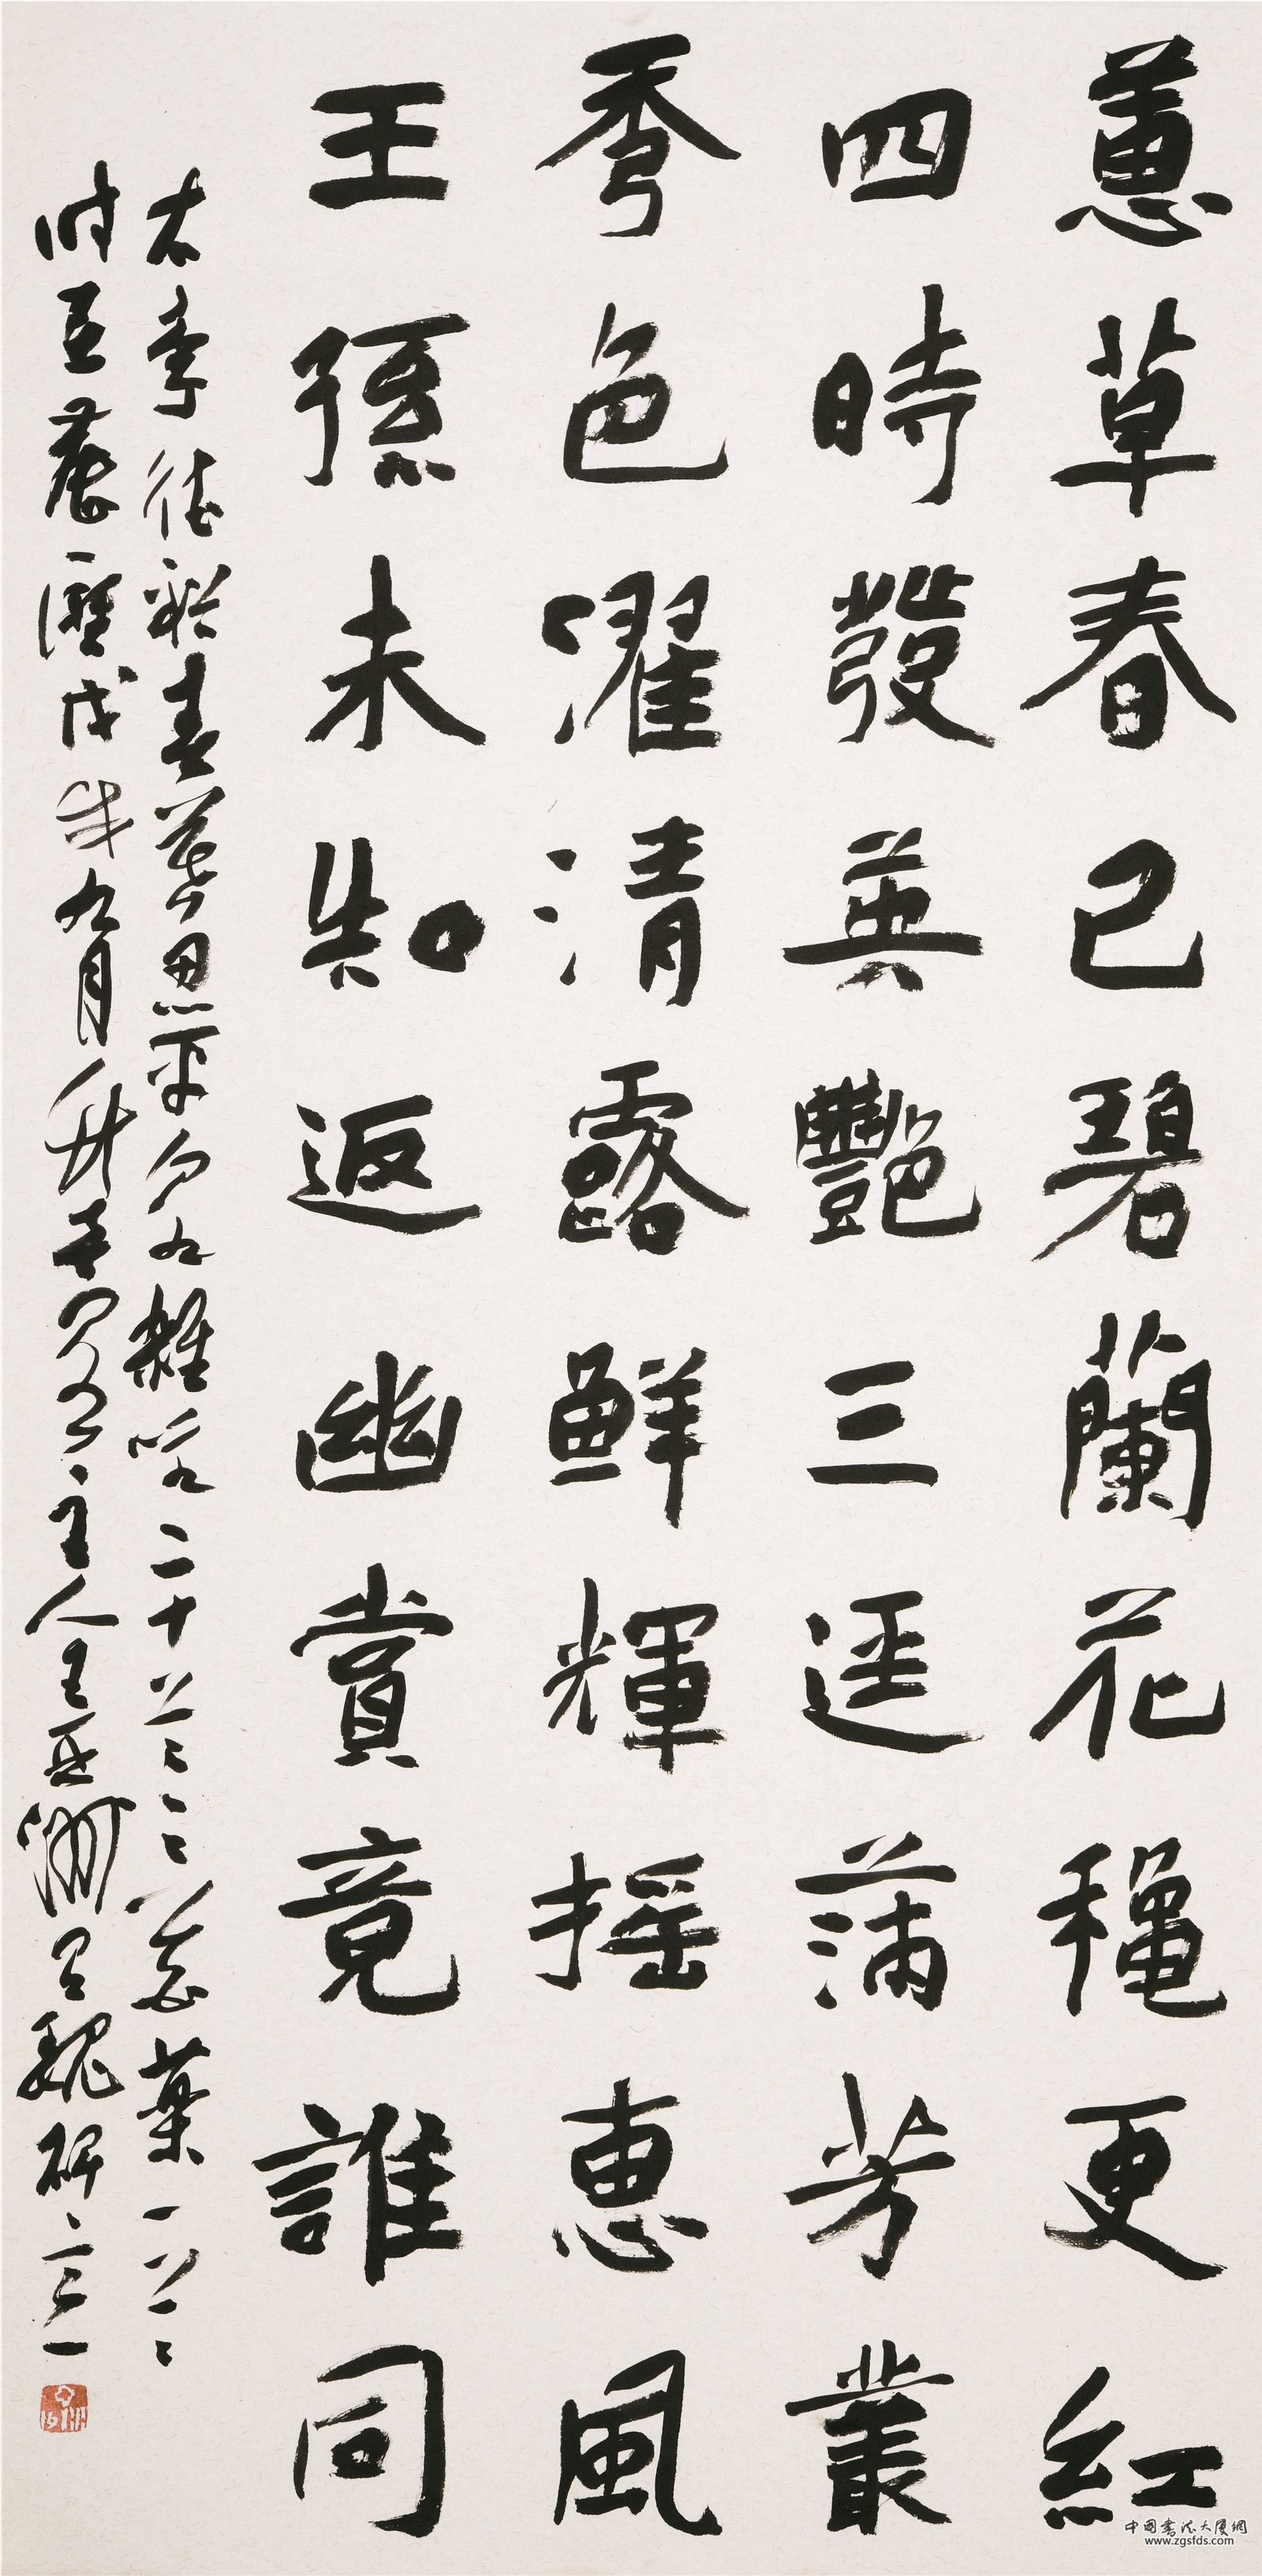 蕙草春已碧蘭花穐更紅
四時發英艷三逕滿芳叢
秀色濯清露鮮輝摇惠風
王孫未知返幽賞竟誰同
右李德裕春暮思平泉雜詠二十首之
時在農歷戊戌九月 主人王亞洲 魏碑
中国書法大厦網
www.zgsfds.com